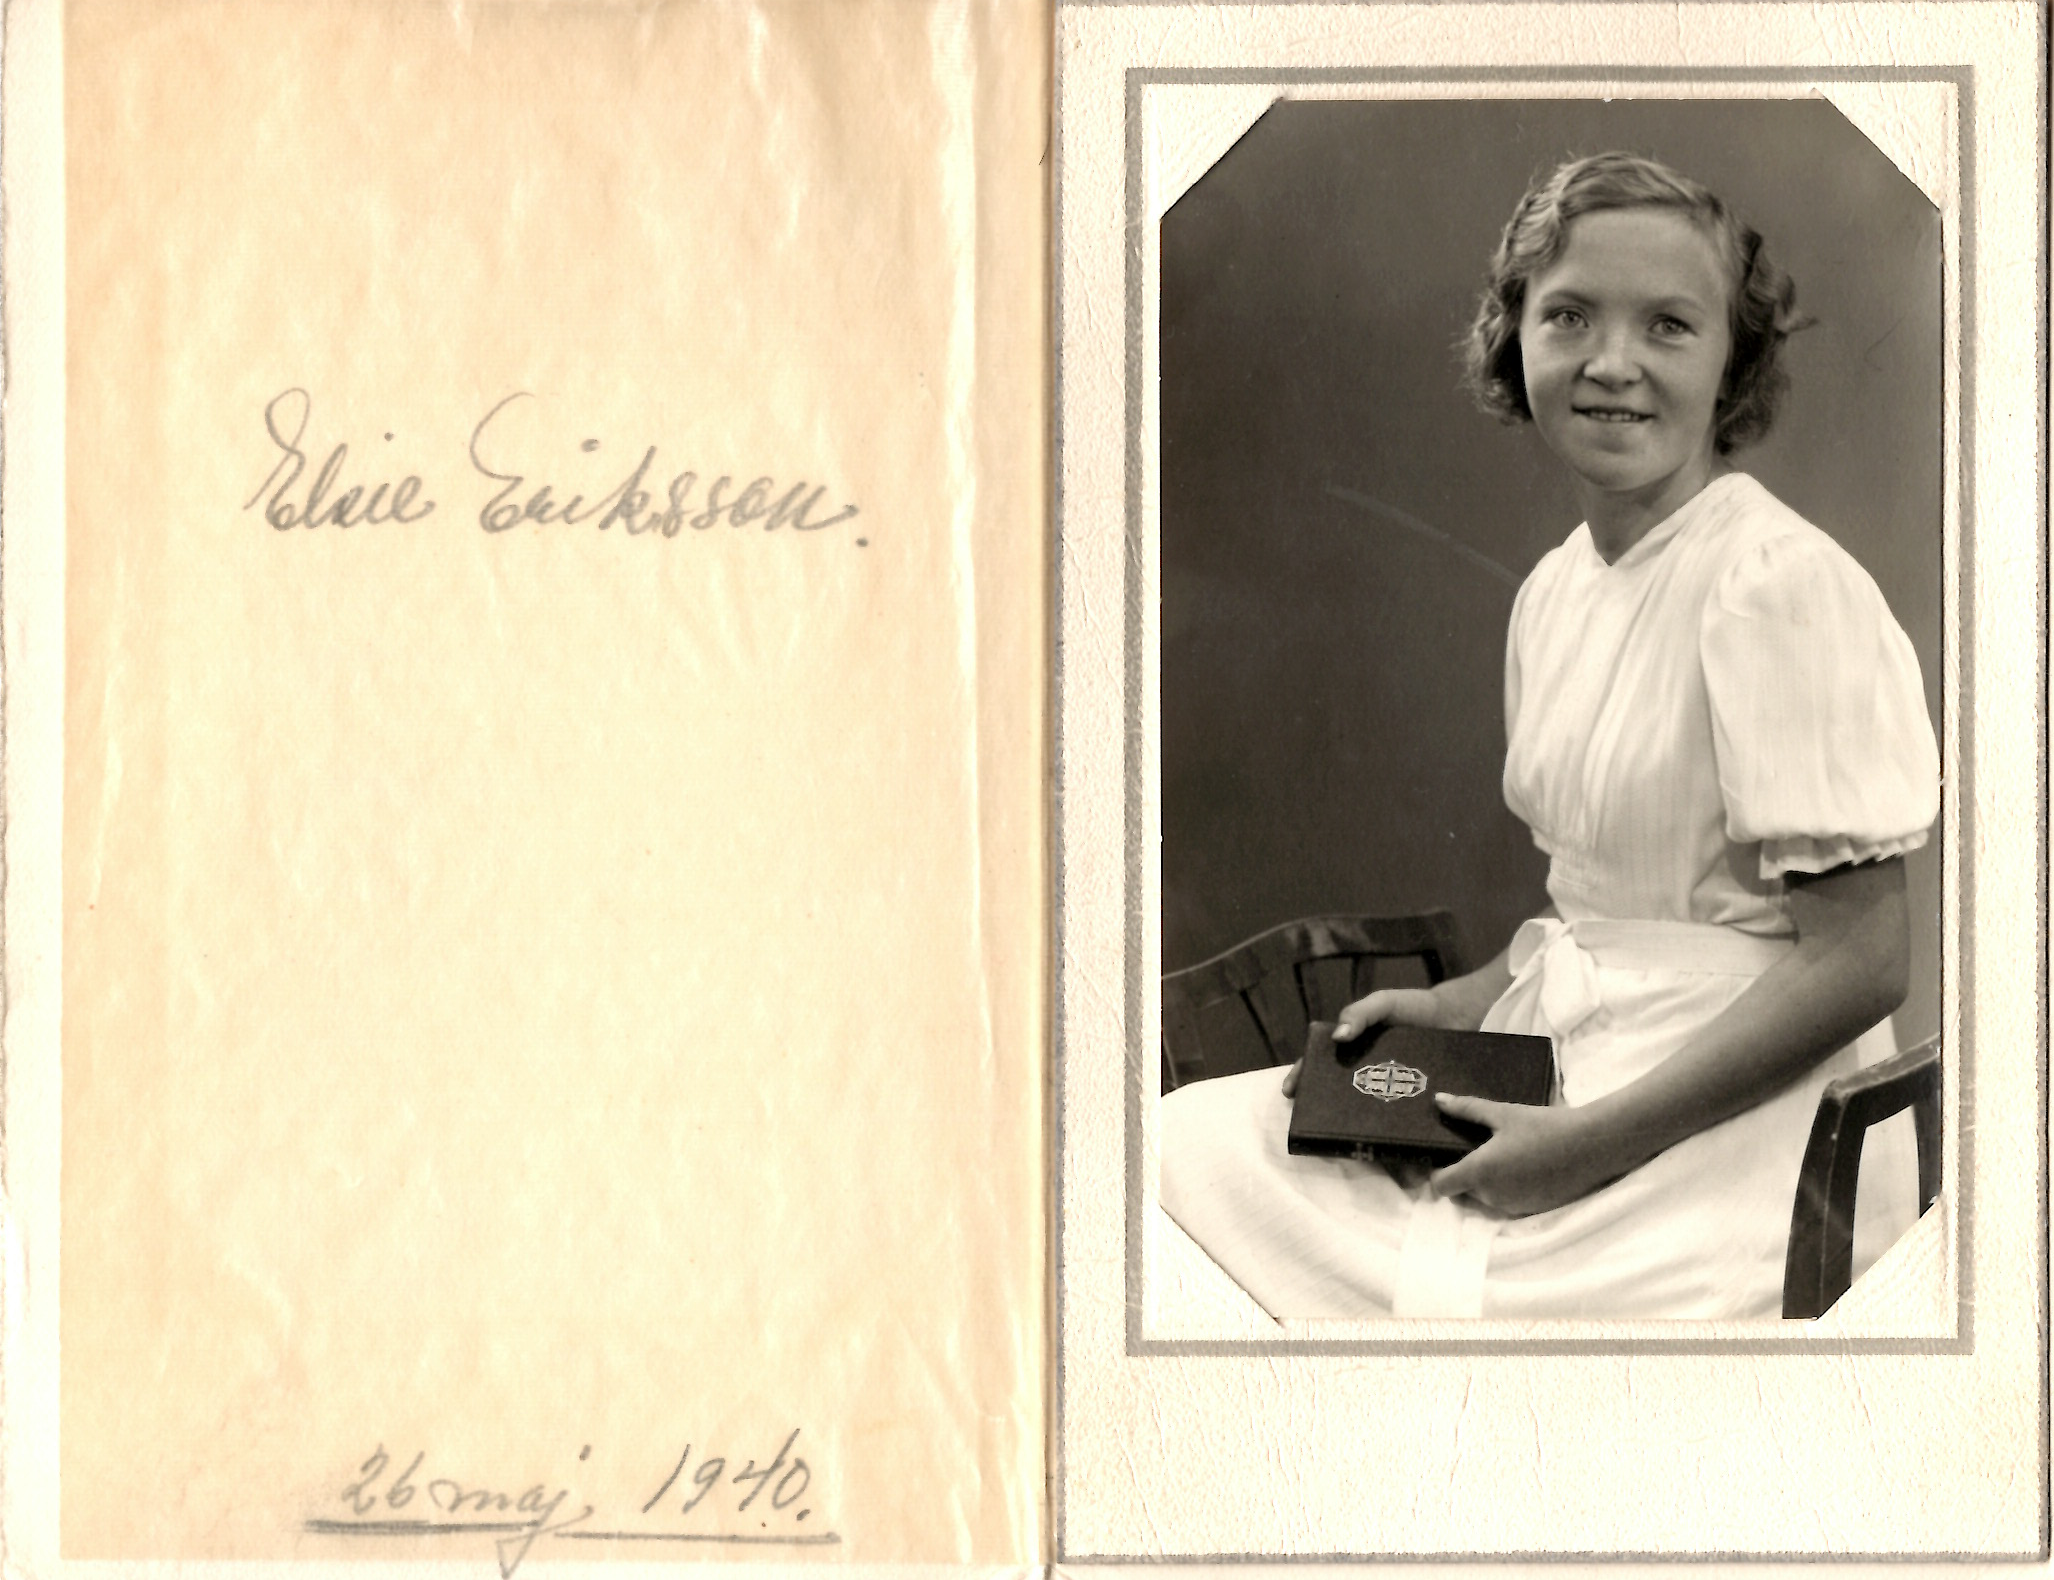 Elsie Eriksson.
26 maj 1940.